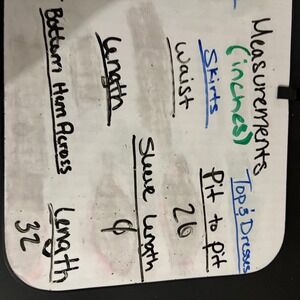 Measurements
(inches)
Skirts
Waist
Length
Bottom Hem Across
Pit to pit
26
Sleeve length
Length
32